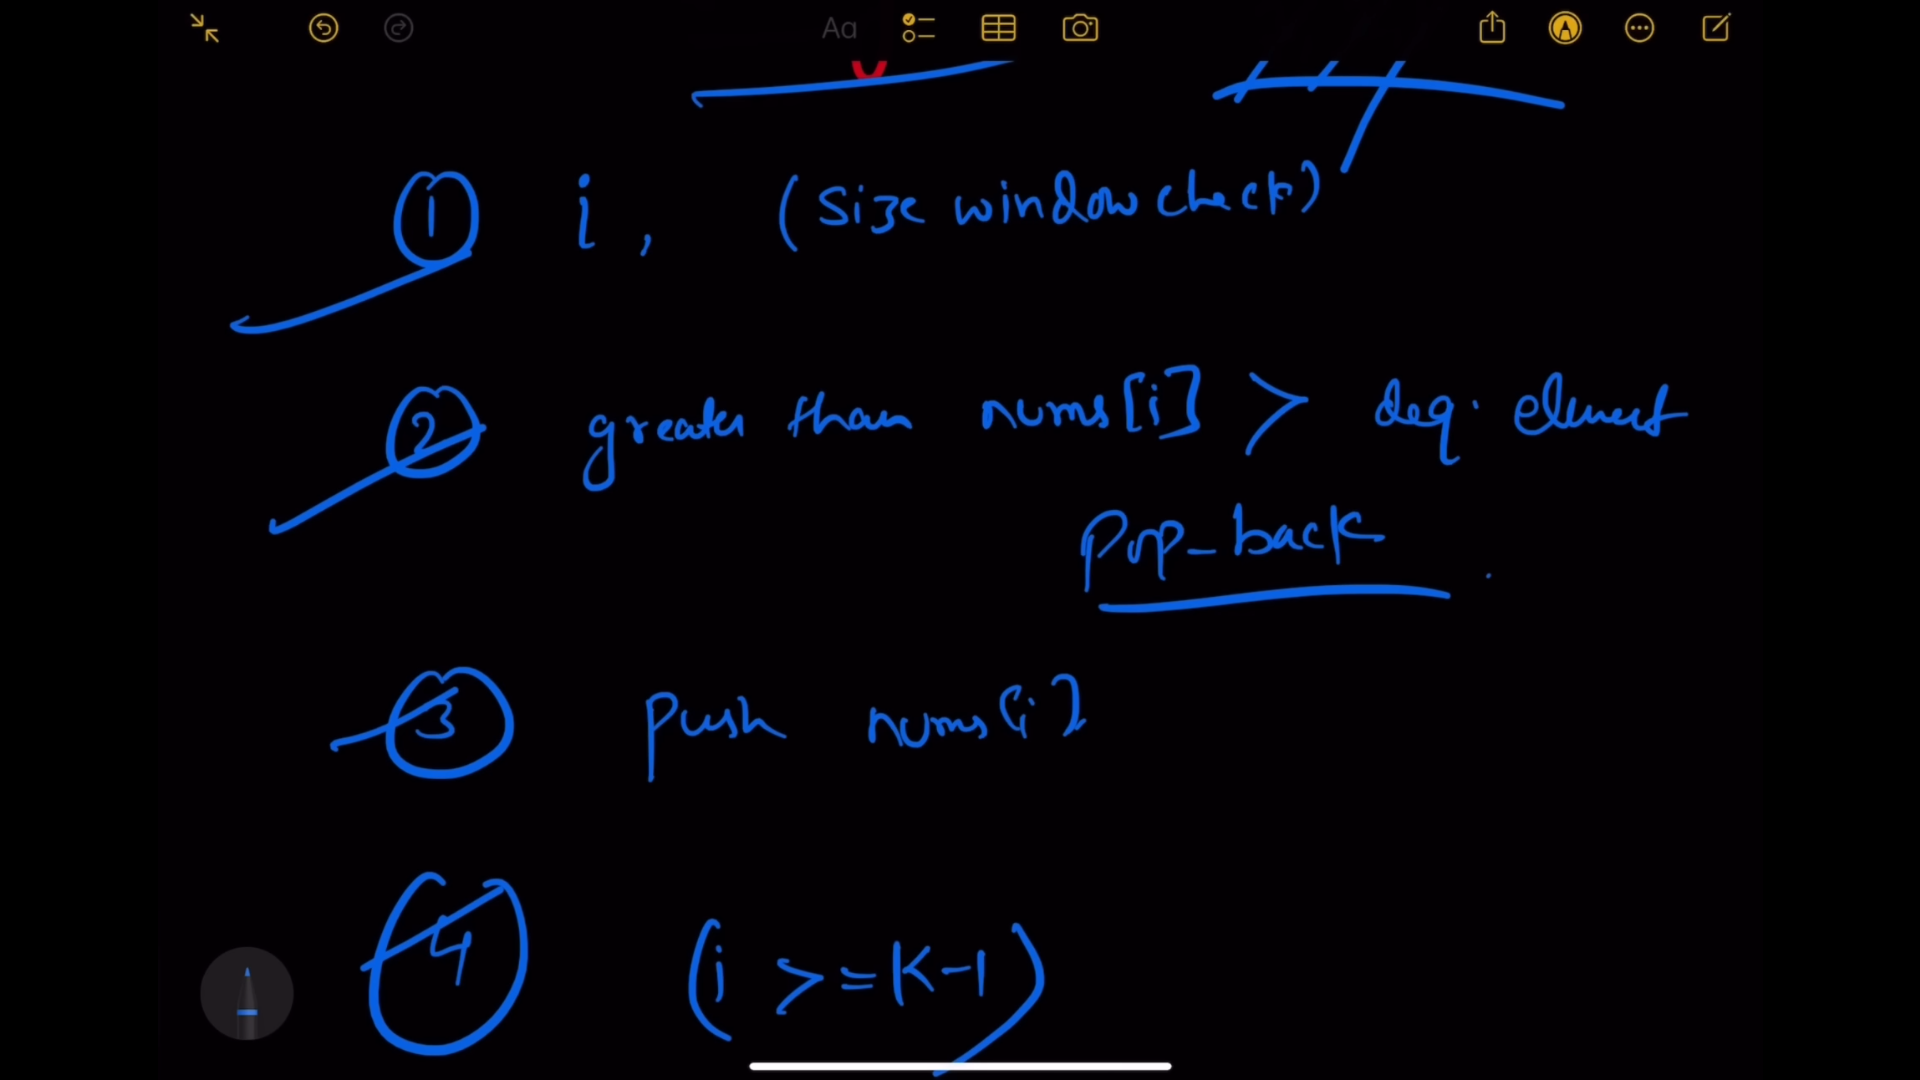 Aa
1 i, (Size window check)
2 greater than nums[i] > deq. element
pop_back
3 push nums[i]
4 (i >= K-1)